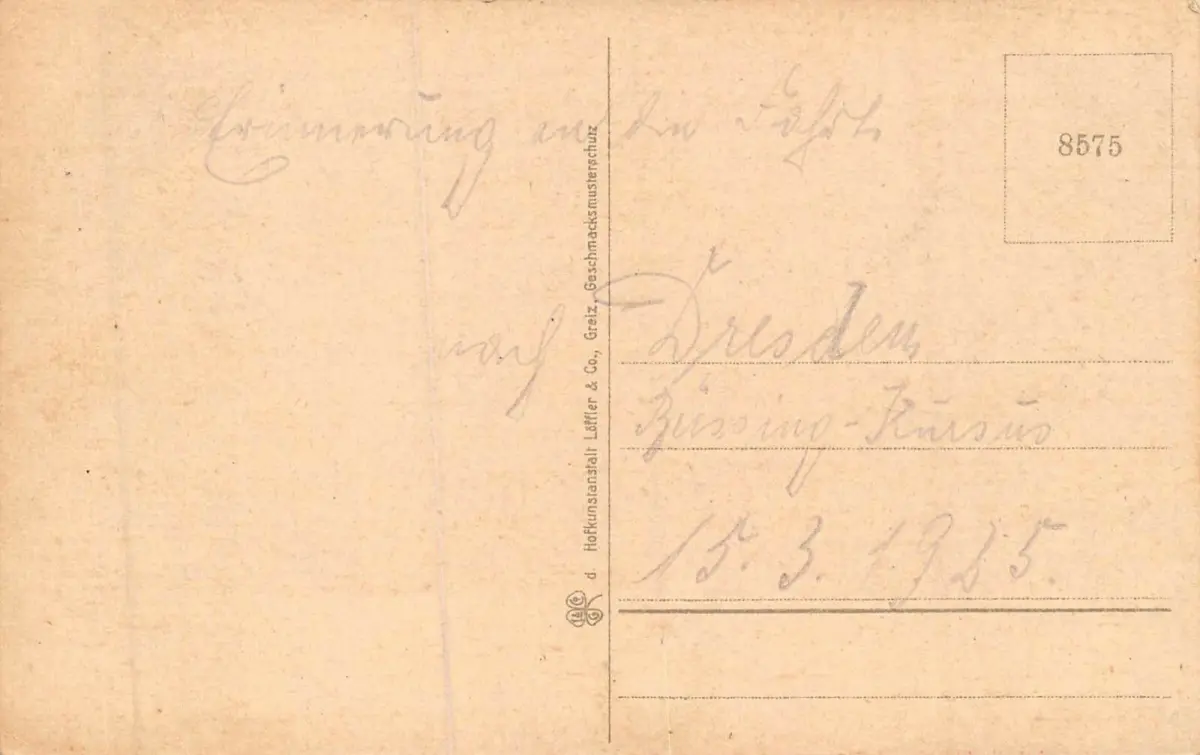 Erinnerung an die Fahrt
8575
nach Dresden
Büssing-Kursus
15.3.1925.
d. Hofkunstanstalt Löffler & Co., Greiz, Geschmacksmusterschutz